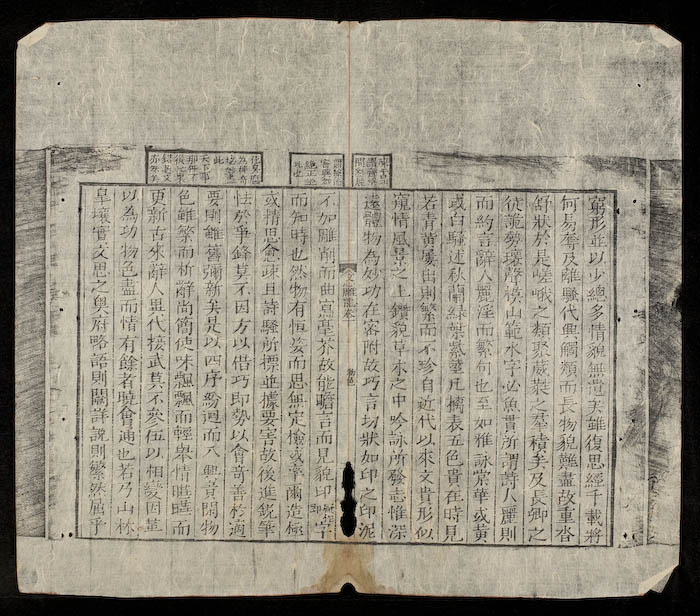 窮形並以少總多情貌無遺矣雖復思經千載將
何易奪及離騷代興觸類而長物貌難盡故重沓
舒狀於是嵯峨之類聚葳蕤之羣積矣及長卿之
徒詭勢瓌聲模山範水字必魚貫所謂詩人麗則
而約言辭人麗淫而繁句也至如雅詠棠華或黃
或白騷述秋蘭綠葉紫莖凡摛表五色貴在時見
若青黃屢出則繁而不珍自近代以來文貴形似
窺情風景之上鑽貌草木之中吟詠所發志惟深
遠體物為妙功在密附故巧言切狀如印之印泥
物色
不加雕削而曲寫毫芥故能瞻言而見貌印字
而知時也然物有恒姿而思無定檢或率爾造極
或精思愈疎且詩騷所標並據要害故後進銳筆
怯於爭鋒莫不因方以借巧即勢以會奇善於適
要則雖舊彌新矣是以四序紛迴而入興貴閑物
色雖繁而析辭尚簡使味飄飄而輕舉情曄曄而
更新古來辭人異代接武莫不參伍以相變因革
以為功物色盡而情有餘者曉會通也若乃山林
皐壤實文思之奧府略語則闕詳說則繁然屈平